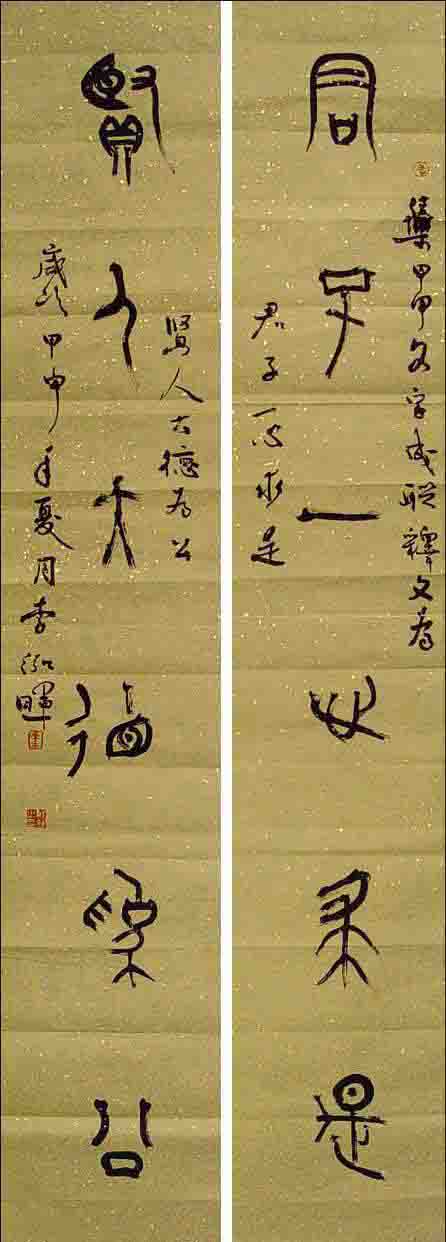 君子一心求是
集甲字成联釋文為
君子一心求是
賢人大德為公
賢人大德为公
歲次甲申年夏月李泓暉